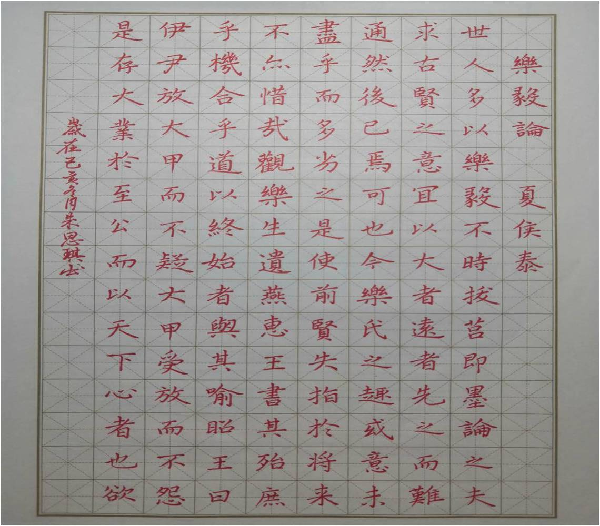 樂毅論 夏侯泰
世人多以樂毅不時拔莒即墨論之夫
求古賢之意宜以大者遠者先之而難
通然後已焉可也今樂氏之趣或意未
盡乎而多劣之是使前賢失指於將来
不亦惜哉觀樂生遺燕惠王書其殆庶
乎機合乎道以終始者與其喻昭王曰
伊尹放大甲而不疑大甲受放而不怨
是存大業於至公而以天下心者也欲
歲在己亥冬月朱思騏书